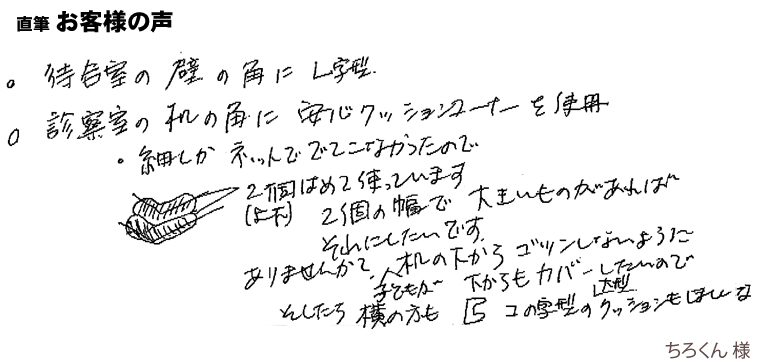 直筆 お客様の声
。待合室の壁の角にL字型
。診察室の机の角に安心クッションコーナーを使用
・細しか ネットででてこなかったので
2個はめて使っています
(上下) 2個の幅で 大きいものがあれば
それにしたいです。
ありませんか? 机の下から ゴツンしないように
子どもが 下からもカバーしたいので
そしたら 横の方も コの字型のクッションもほしいな
大型
ちろくん 様